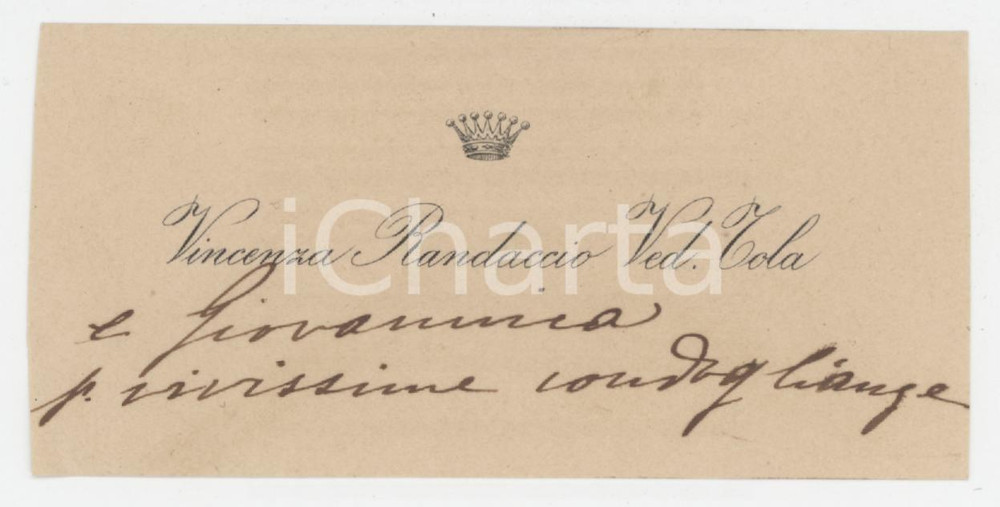 Vincenza Randaccio Ved. Tola
iCharta
e Giovannica
p. vivissime condoglianze